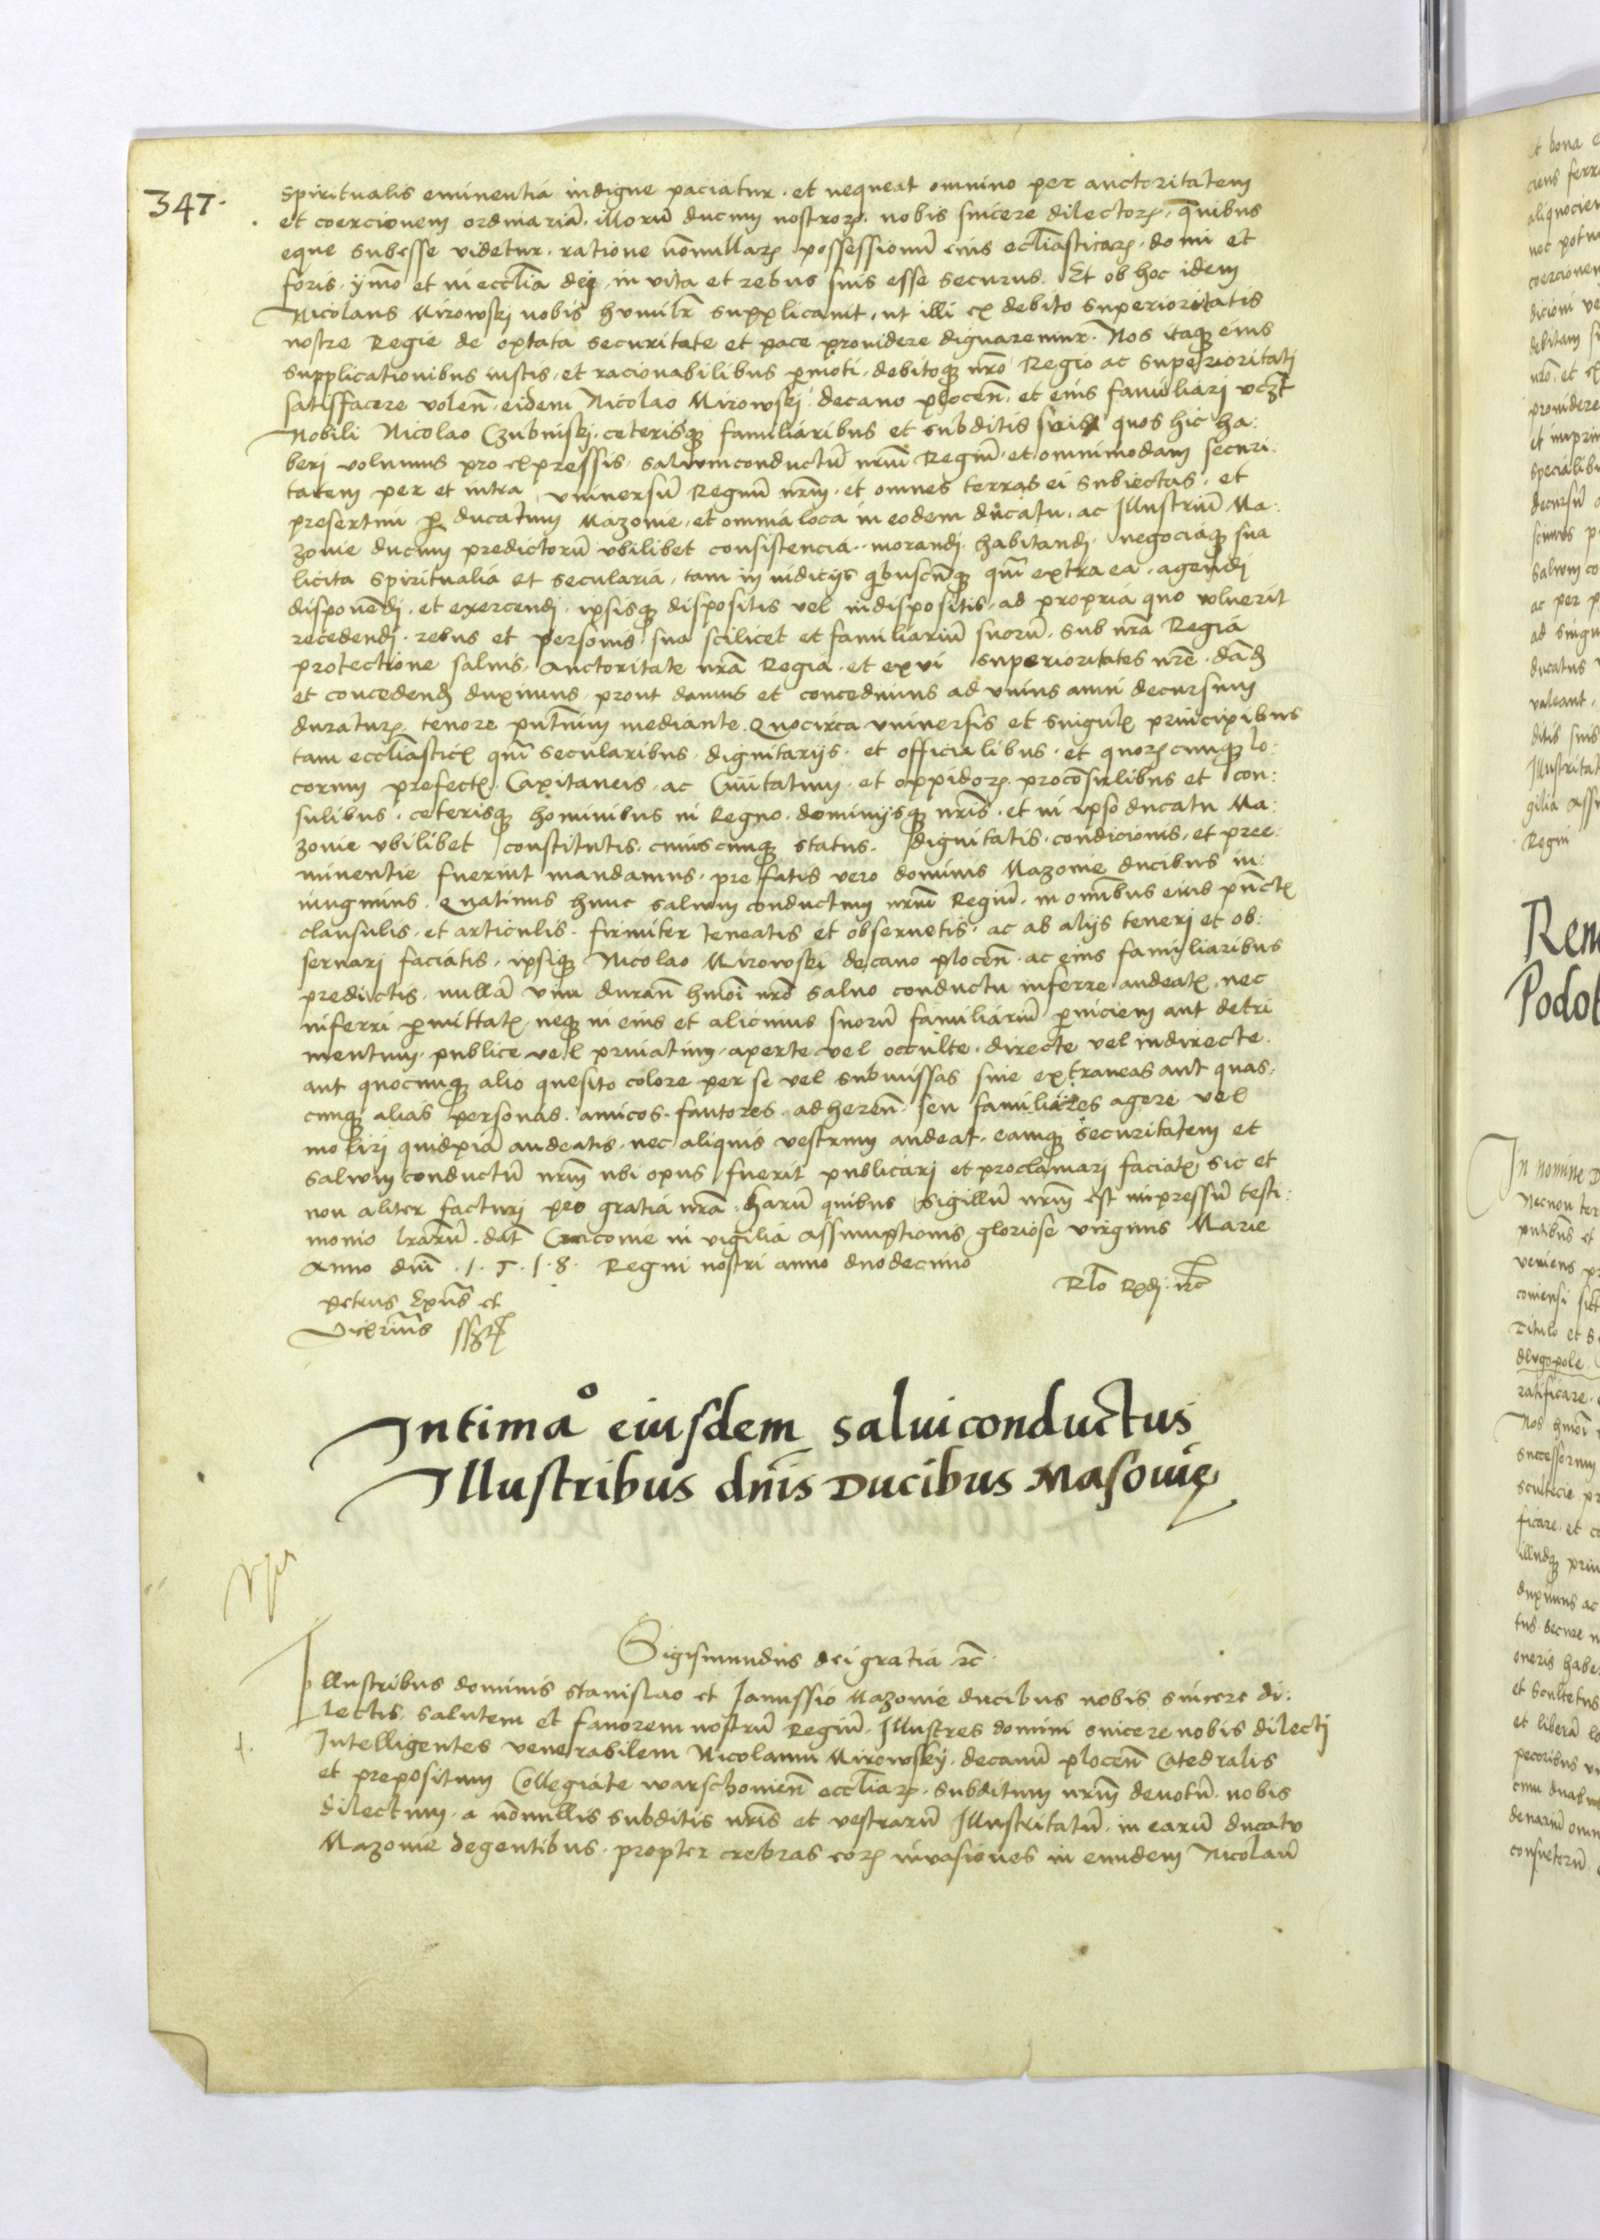 347.
spiritualis eminentia indigne paciatur. et nequeat omnino per auctoritatem
et coercionem ordinariã. illorũ ducum nostroꝝ. nobis sincere dilectoꝝ. quibus
eque subesse videtur. ratione nõnullaꝝ possessionũ eius eccl̃iasticaꝝ. domi et
foris. ymo et in eccl̃ia dei, in vita et rebus suis esse securus. Et ob hoc idem
Nicolaus Mirowskj nobis humilr̃ supplicauit, ut illi ex debito superioritatis
nostre Regie de optata securitate et pace prouidere dignaremur. Nos itaqꝫ eius
supplicationibus iustis, et racionabilibus ꝑmoti. debitoqꝫ nr̃o Regio ac superioritati
satisfacere volen̄. eidem Nicolao Mirowskj decano plocen̄. et eius familiarj vcꝫt
Nobili Nicolao Czubniskj. ceterisqꝫ familiaribus et subditis suis quos hic ha:
berj volumus pro expressis. saluumconductũ nr̃um Regiũ. et omnimodam securi:
tatem per et intra vniuersũ Regnũ nr̃m. et omnes terras ei subiectas. et
presertim ꝑ ducatum Mazouie, et omnia loca in eodem ducatu, ac Illustriũ Ma:
zouie ducum predictorũ vbilibet consistencia. morandj. habitandj. negociaqꝫ sua
licita spiritualia et secularia, tam in iudicijs qͥbuscũqꝫ qm̃ extra ea. agendj
disponendj. et exercendj. ipsisqꝫ dispositis vel indispositis. ad propria quo voluerit
recedendj. rebus et personis sua scilicet et familiariũ suorũ. sub nr̃a Regia
protectione saluis. auctoritate nr̃a Regia. et ex vi superioritates nr̃e. dañ
et concedeñ duximus. prout damus et concedimus ad vnius anni decursum
duratuꝝ tenore pñtium mediante. Quocirca vniuersis et singuł principibus
tam eccl̃iasticꝭ qm̃ secularibus. dignitarijs. et officialibus. et quoꝝcunqꝫ lo:
corum prefectꝭ Capitaneis. ac Ciuitatum. et oppidoꝝ. proco̅sulibus et con:
sulibus. ceterisqꝫ hominibus in Regno. dominijsqꝫ nr̃is. et in ipso ducatu Ma:
zouie vbilibet constitutis. cuiuscunqꝫ status. dignitatis. condicionis. et pree:
minentie fuerint mandamus. pre fatis vero dominis Mazouie ducibus in:
iungimus. Quatinus hunc saluum conductum nr̃um Regiũ. in om̃ibus eius pũctꝭ
clausulis. et articulis. firmiter teneatis et obseruetis. ac ab alijs tenerj et ob:
seruarj faciatis, ipsiqꝫ Nicolao Mirowskj decano plocen̄. ac eius familiaribus
predictis. nullã vim durañ hm̃oi nr̃o saluo conductu inferre audeatꝭ, nec
inferri ꝑmittatꝭ, neqꝫ in eius et alicuius suorũ familiariũ ꝑniciem aut detri
mentum. publice vel priuatim. aperte vel occulte. directe vel indirecte.
aut quocunqꝫ alio quesito colore per se vel submissas siue extraneas aut quas.
cunqꝫ alias personas. amicos. fautores. adheren̄. seu familiares agere vel
molirj quidpiã audeatis. nec aliquis vestrum audeat. eamqꝫ securitatem et
saluum conductũ nr̃m ubi opus fuerit publicarj et proclamarj faciatꝭ, sic et
non aliter facturj pro gratia nr̃a. harũ quibus sigillũ nr̃m est impressũ testi:
monio lr̃arũ. dat̃ Cracouie in vigilia Assumptionis gloriose virginis Marie
Anno dñi .1.5.1.8. Regni nostri anno duodecimo
Rl̃o
Petrus Ep̃us et
Vicꝫriũs
Intima° eiusdem saluiconductus
Illustribus dñis Ducibus Masouię
Sigismundus dei gratia ꝛc̃.
Illustribus dominis Stanislao et Janussio Mazouie ducibus nobis sincere di:
lectis. salutem et fauorem nostrũ Regiũ. Illustres domini sincere nobis dilectj
Intelligentes venerabilem Nicolaum Mirowskÿ. decanũ plocen̄ Catedralis
et prepositum Collegiate warschouien̄ eccl̃iaꝝ. subditum nr̃m deuotũ. nobis
dilectum. a nõnullis subditis nr̃is et vestrarũ Illustritatũ. in earũ ducatu
Mazouie degentibus. propter crebras eoꝝ inuasiones in eundem Nicolaũ